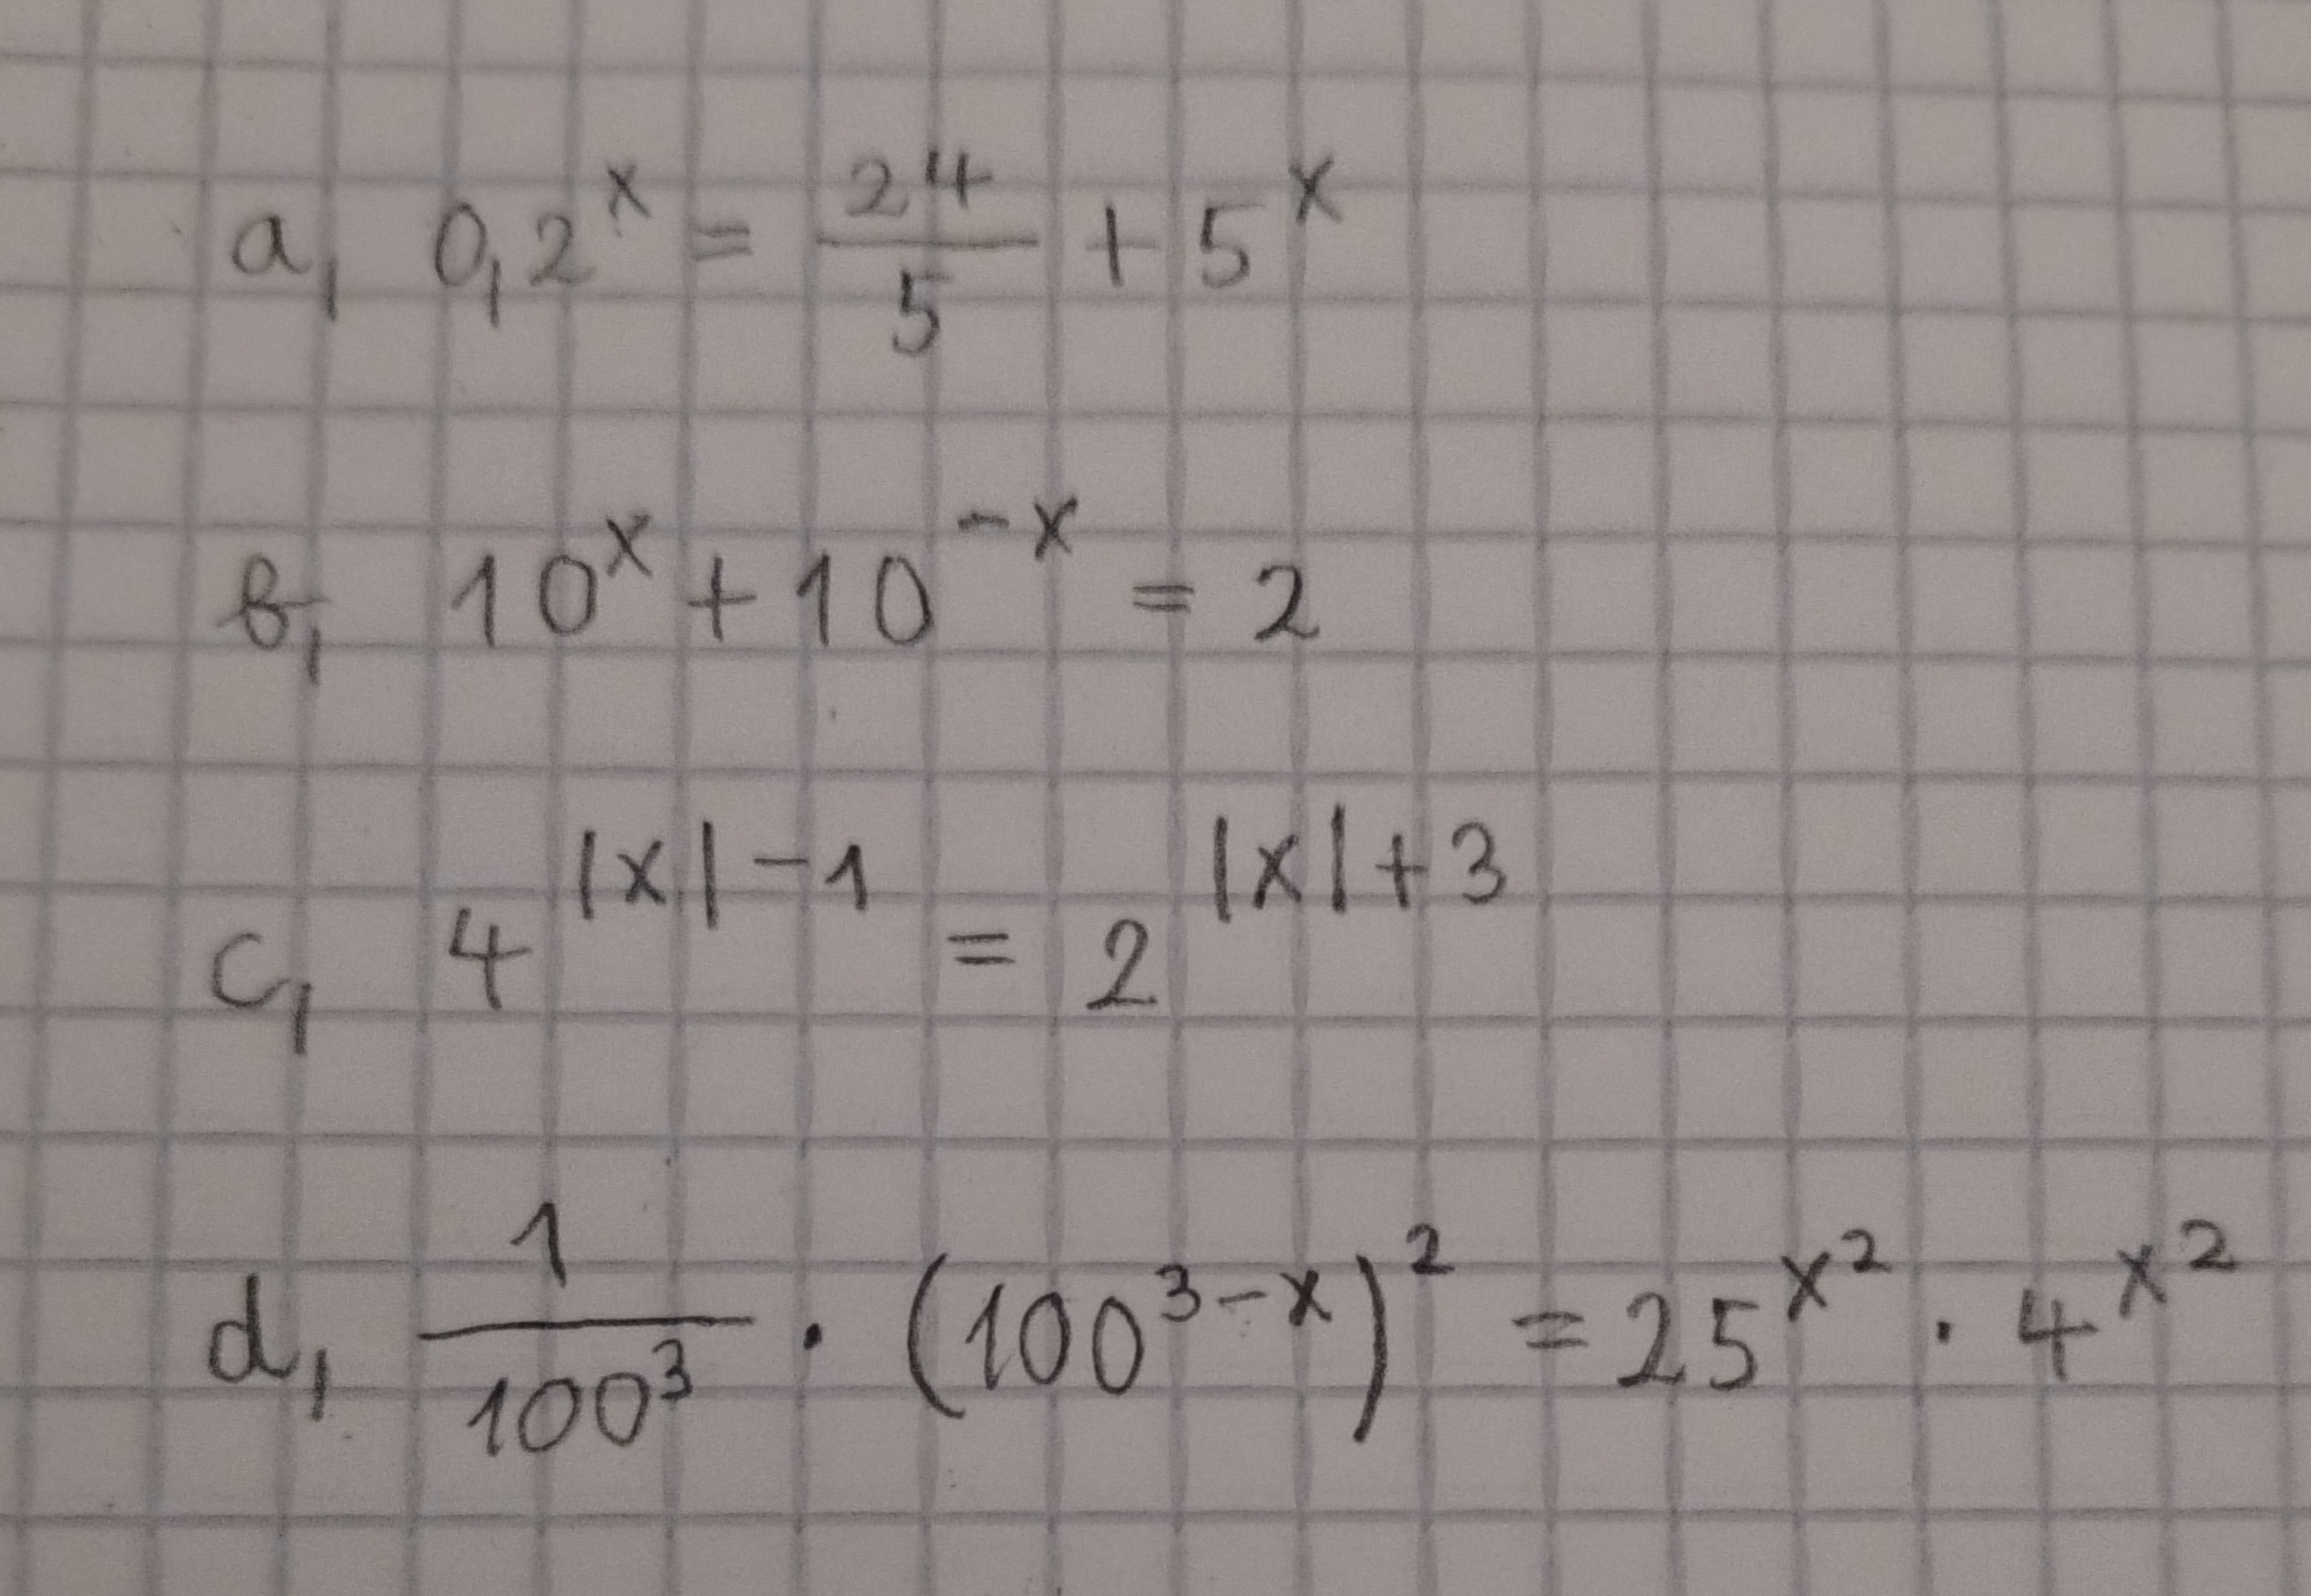 a, 0,2^x = 24/5 + 5^x
b, 10^x + 10^-x = 2
c, 4^|x|-1 = 2^|x|+3
d, 1/100^3 · (100^3-x)^2 = 25^x^2 · 4^x^2